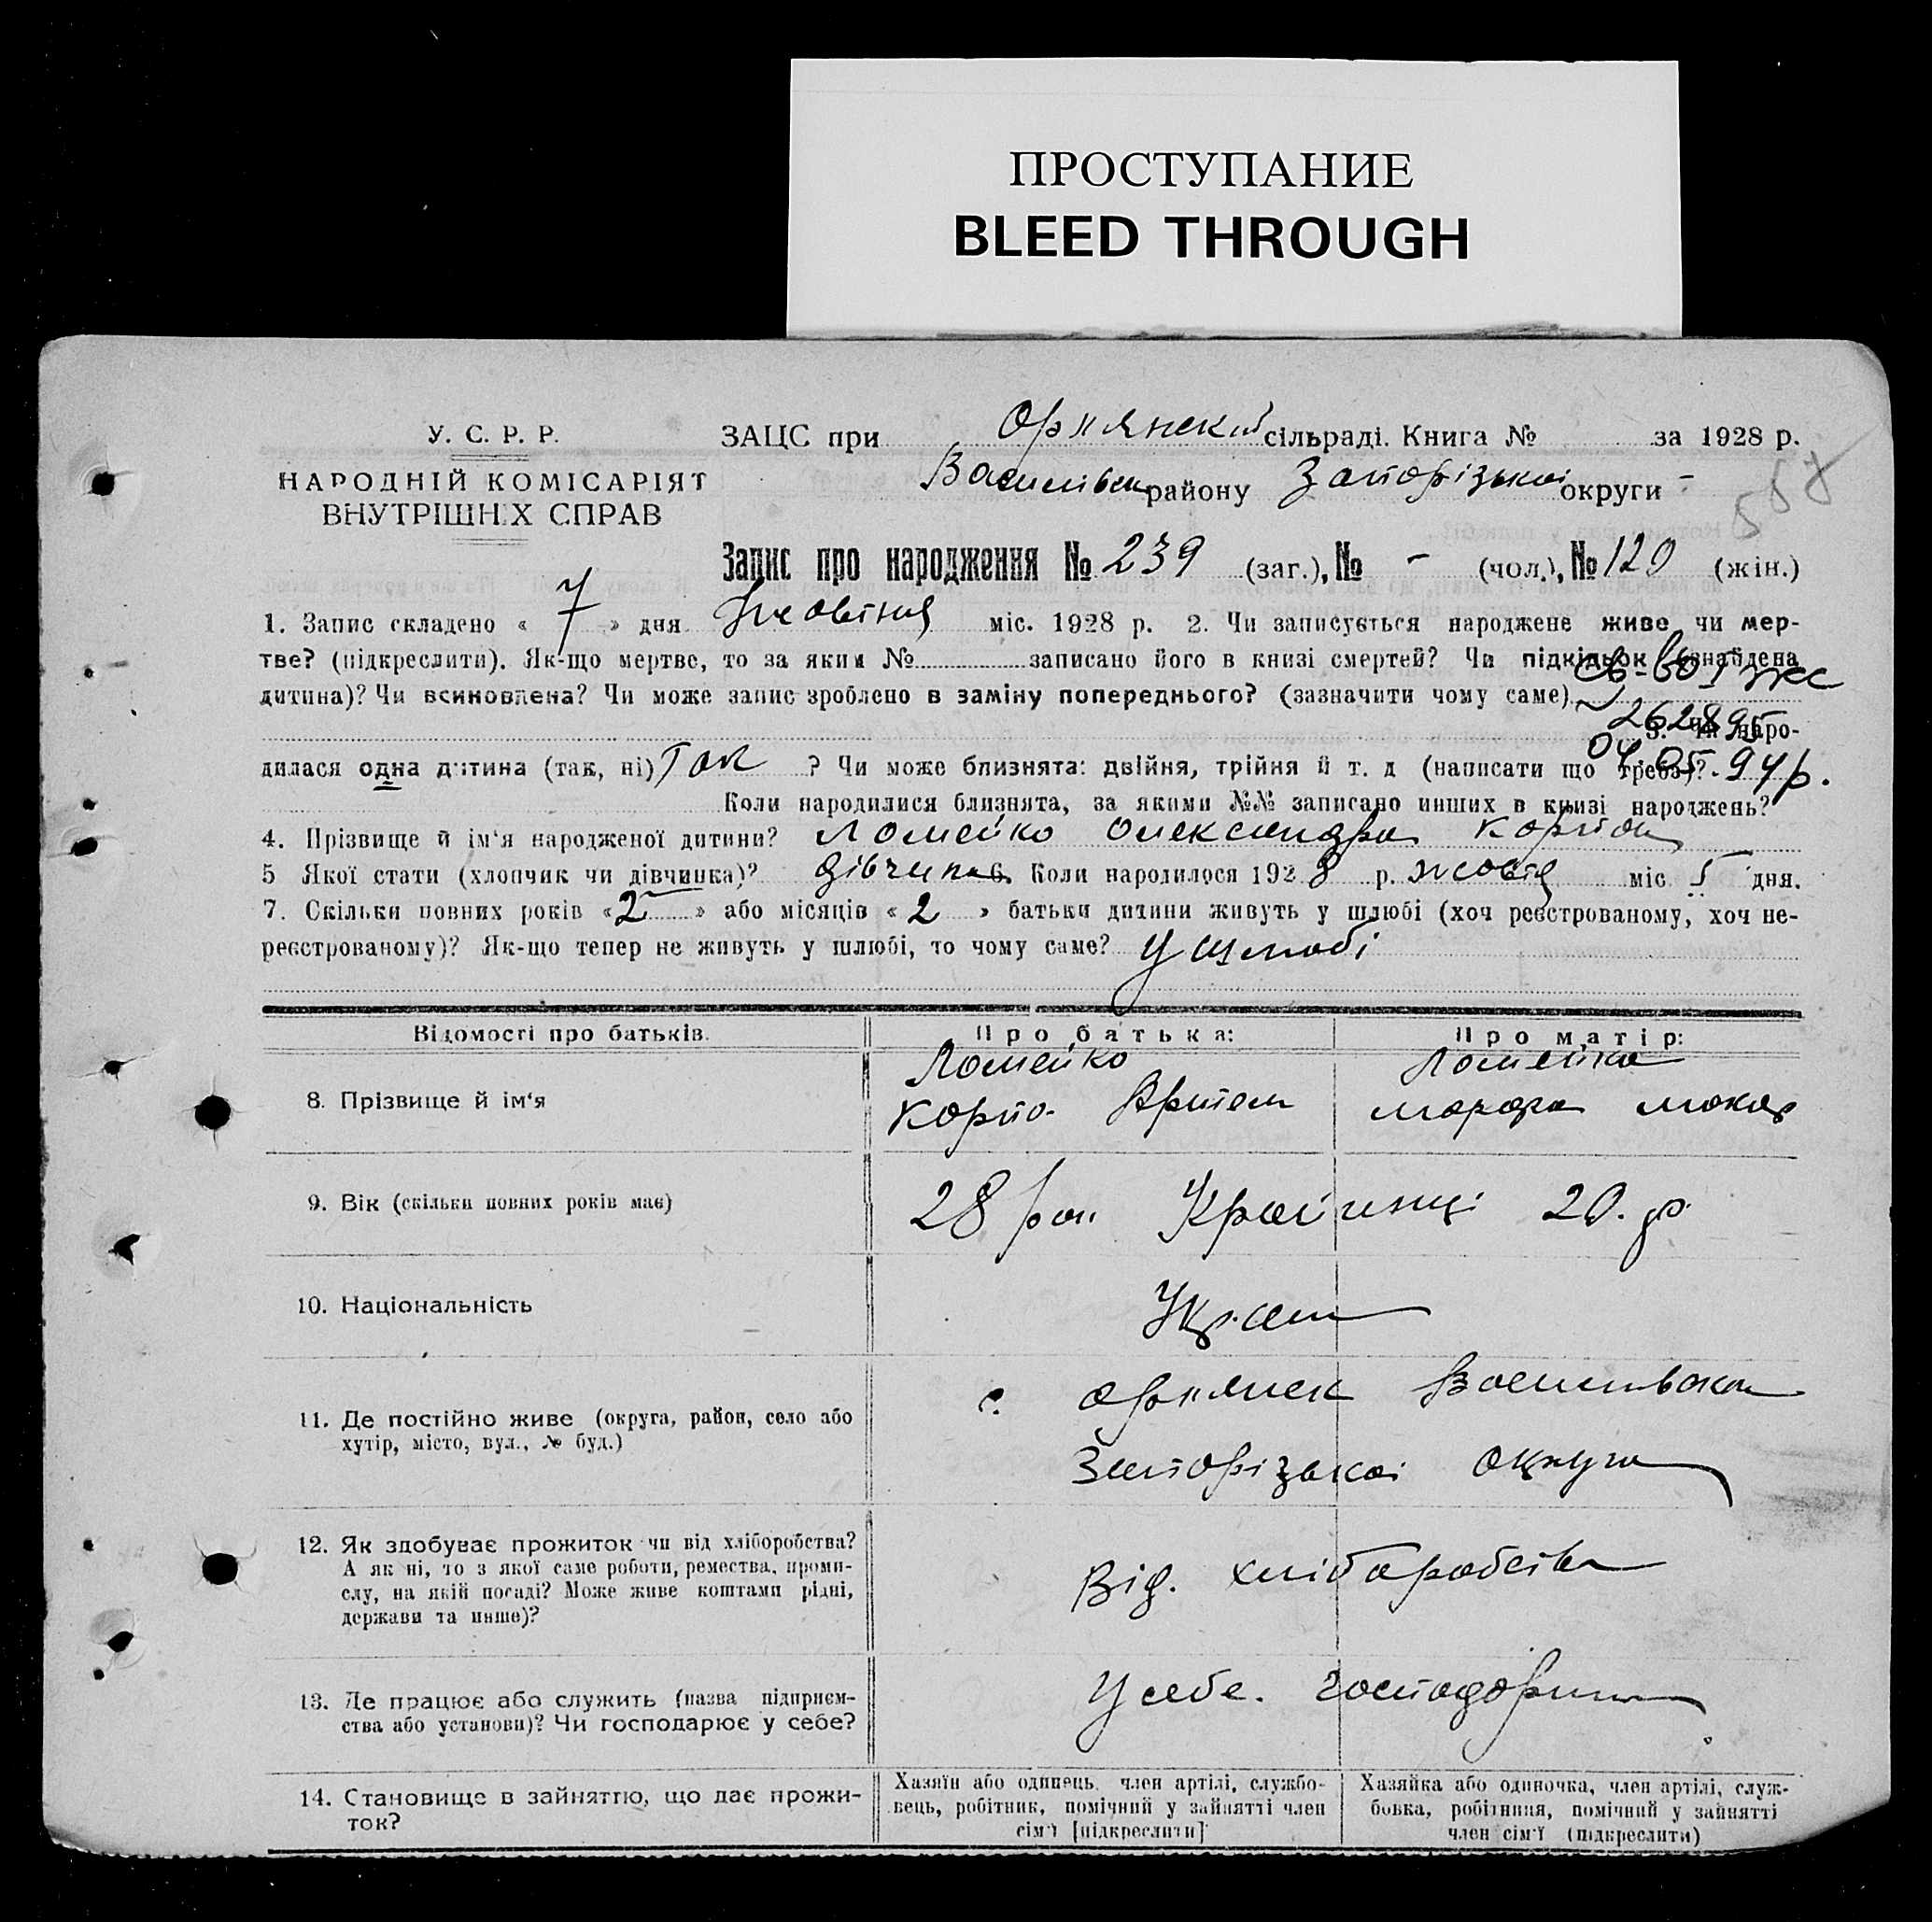 ПРОСТУПАНИЕ
BLEED THROUGH
У. С. Р. Р.
НАРОДНІЙ КОМІСАРІЯТ
ВНУТРІШНІХ СПРАВ
ЗАЦС при Орлянский сільраді. Книга № за 1928 р.
Василівськ району Запорізької округи -
Запис про народження № 239 (заг.), № - (чол.), № 120 (жін.)
1. Запис складено « 7 » дня Жовтня міс. 1928 р. 2. Чи записується народжене живе чи мер-
тве? (підкреслити). Як-що мертве, то за яким № записано його в книзі смертей? Чи підкідьок (знайдена
дитина)? Чи всиновлена? Чи може запис зроблено в заміну попереднього? (зазначити чому саме)
св-во I ЖС
262895
04.05.94р.
3. Чи наро-
дилася одна дитина (так, ні) Так ? Чи може близнята: двійня, трійня й т. д (написати що треба)?
Коли народилися близнята, за якими №№ записано инших в книзі народжень?
4. Прізвище й ім'я народженої дитини? Ломейко Олександра Карпов
5 Якої стати (хлопчик чи дівчинка)? дівчина 6. Коли народилося 1928 р. жовтя міс. 5 дня.
7. Скільки повних років « 2 » або місяців « 2 » батьки дитини живуть у шлюбі (хоч реєстрованому, хоч не-
реєстрованому)? Як-що тепер не живуть у шлюбі, то чому саме? У шлюбі
Відомості про батьків.
Про батька:
Про матір:
8. Прізвище й ім'я
Ломейко
Карпо Артем
Ломейко
Марфа Макар
9. Вік (скільки повних років має)
28 рок Україинці 20. р.
10. Національність
Укр.
11. Де постійно живе (округа, район, село або
хутір, місто, вул., № буд.)
с. Орлянск Василівськ
Запорізької округи
12. Як здобуває прожиток чи від хліборобства?
А як ні, то з якої саме роботи, ремества, проми-
слу, на якій посаді? Може живе коштами рідні,
держави та инше)?
Від. хліборобства
13. Де працює або служить (назва підприєм-
ства або установи)? Чи господарює у себе?
У себе. господорит
14. Становище в зайняттю, що дає прожи-
ток?
Хазяїн або одинець, член артілі, службо-
вець, робітник, помічний у зайнятті член
сім'ї [підкреслити]
Хазяйка або одиночка, член артілі, служ-
бовка, робітниця, помічний у зайнятті
член сім'ї (підкреслити)